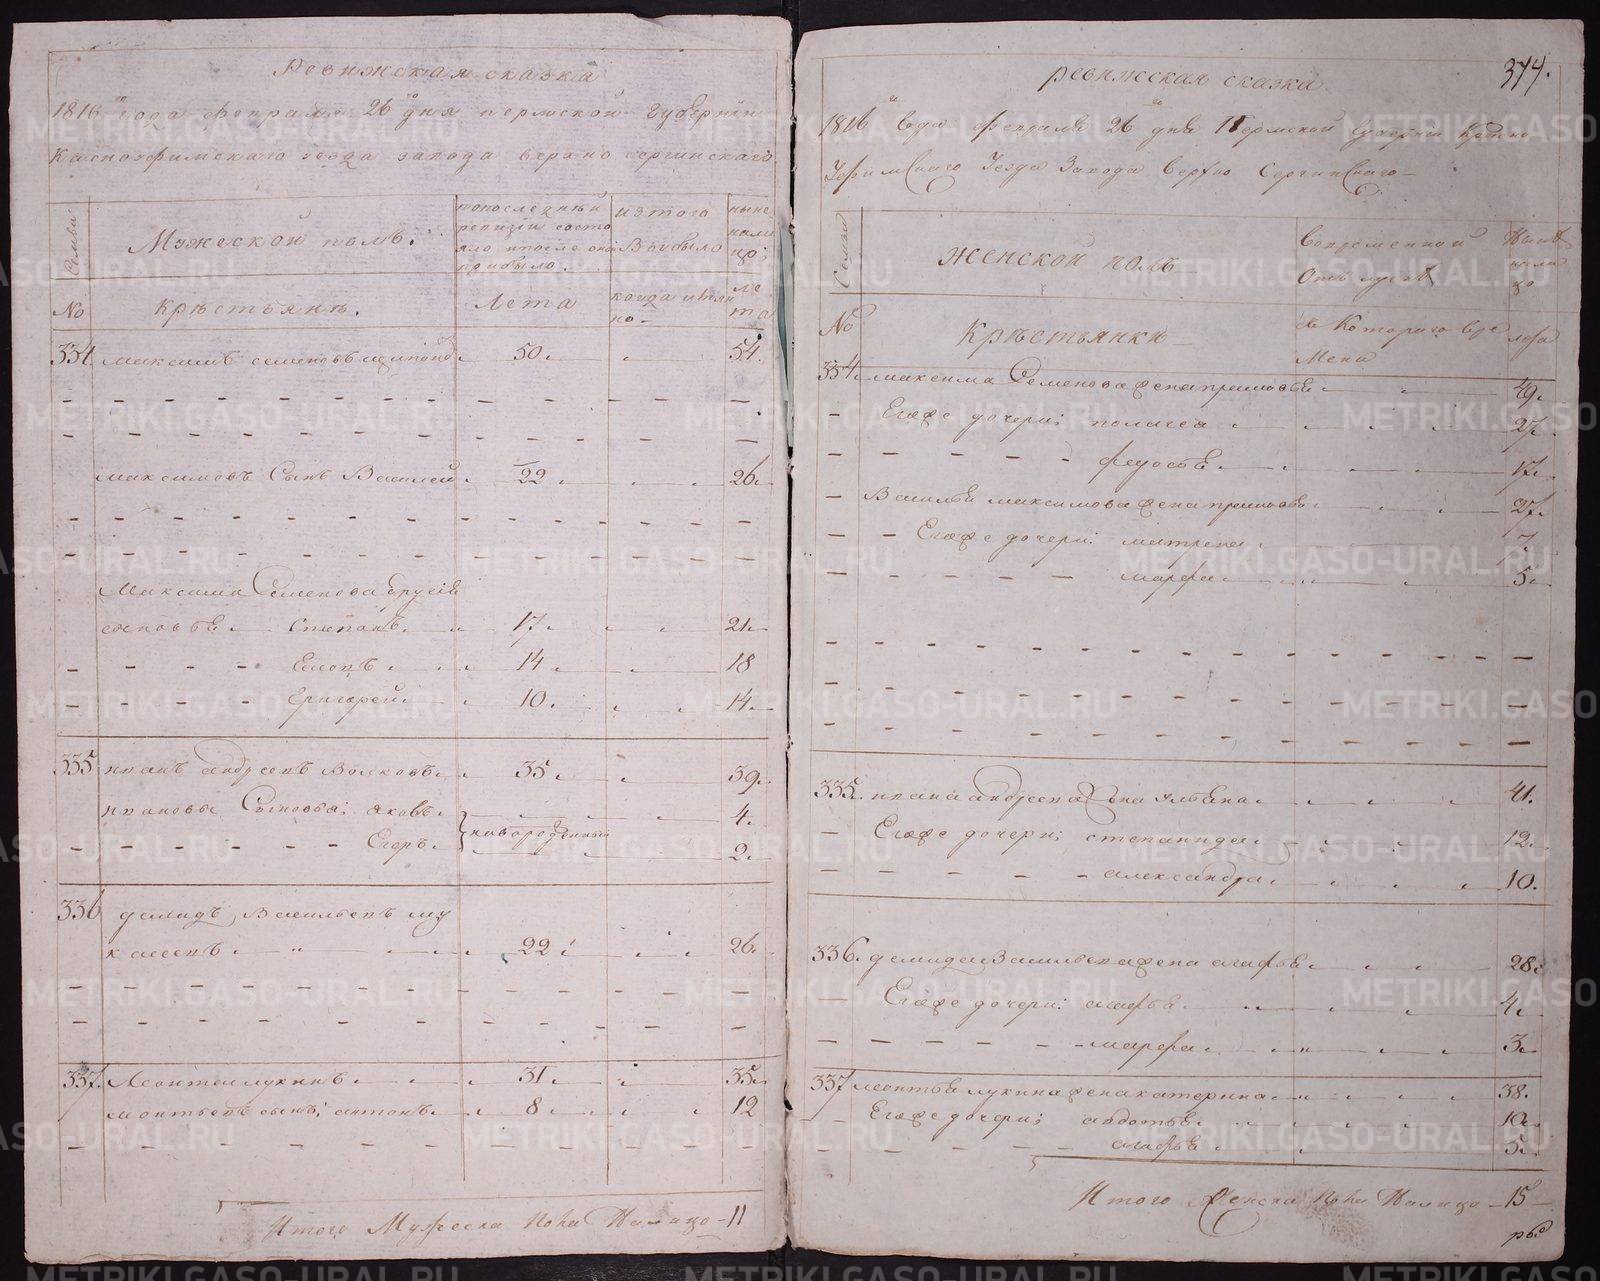 Ревижская сказка
1816 го года февраля 26 го дня пермской губернии
Красноуфимскаго уезда завода верхно сергинскаго
Семьи
Мужеской полъ.
попоследней
ревизии состо
яло ипосле оной
прибыло.
изтого
Выбыло
ныне
нали
цо
No
Крѣстьянъ.
Лета
когда имян
но
ле
та
334. максимъ семеновъ 50. 54.
максимовъ Сынъ Василей 22 26.
Максима Семенова другiе
сыновье Степанъ 17. 21.
Есипъ 14 18
Григорей 10. 14.
335 иванъ андреевъ Волковъ 35. 39.
ивановы Сыновья; яковъ 4.
новорожденныи
Егоръ 2.
336 демидъ Васильевъ му
касеевъ 22 26.
337. Леонтеи лукинъ 31. 35.
леонтьевъ сынъ; антонъ 8. 12
Итого Мужеска пола Налицо 11
374.
ревижская сказка
1816 го года февраля 26 го дня Пермской губернiи Красно
Уфимскаго Уезда Завода Верхно Сергинскаго
Семьи
Женской полъ
Вовременной
Отълучке
Ныне
нали
цо
No
Крѣстьянки
съ Котораго вре
мени
лета
334. максима Семенова жена прасковья 49.
Егоже дочери; пелагея 27.
федосья 17.
Василья максимова жена прасковья 27.
Егоже дочери: матрена 7
марфа 5.
335. ивана андреева жена ульяна 41.
Егоже дочери; степанида 12.
александра 10.
336. демида Васильева жена агафья 28.
Егоже дочери: агафья 4.
марфа 3.
337 леонтья лукина жена катерина 38.
Егоже дочери; авдотья 10.
агафья 5.
Итого Женска пола Налицо 15
METRIKI.GASO-URAL.RU